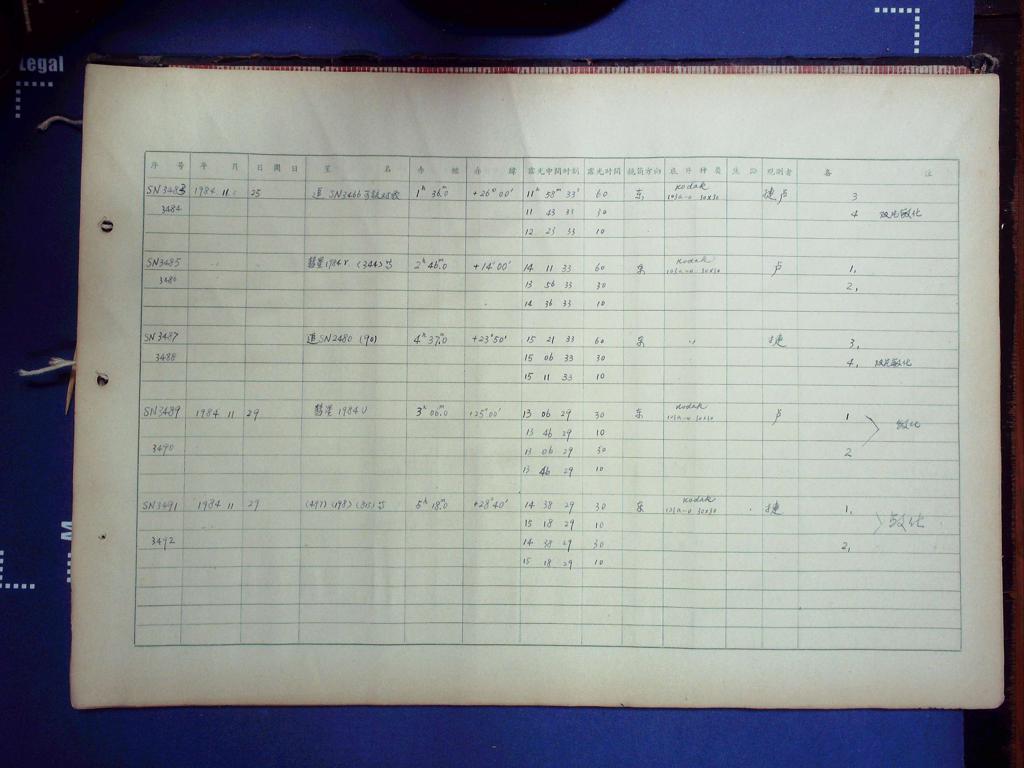 Legal
序 号 年 月 日 期 日 星 名 赤 经 赤 纬 露光中间时刻 露光时间 镜筒方向 底片种类 观测者 备 注
SN3483 1984 11 25 追 SN3466 1ʰ 36ᵐ.0 +26°00′ 11ʰ 58ᵐ 33ˢ 60 东 Kodak 103a-o 30x30 捷卢 3
3484 11 43 33 30 4 双片敏化
12 23 33 10
SN3485 彗星1984r (344)等 2ʰ 46ᵐ.0 +14°00′ 14 11 33 60 东 Kodak 103a-o 30x30 卢 1,
3486 13 56 33 30 2,
14 36 33 10
SN3487 追SN2480 (90) 4ʰ 37ᵐ.0 +23°50′ 15 21 33 60 东 〃 捷 3,
3488 15 06 33 30 4, 双片敏化
15 11 33 10
SN3489 1984 11 29 彗星 1984U 3ʰ 06ᵐ.0 +25°00′ 13 06 29 30 东 Kodak 103a-o 30x30 卢 1 敏化
13 46 29 10
3490 13 06 29 30 2
13 46 29 10
SN3491 1984 11 29 5ʰ 18ᵐ.0 +28°40′ 14 38 29 30 东 Kodak 103a-o 30x30 捷 1, 敏化
15 18 29 10
3492 14 38 29 30 2,
15 18 29 10
M